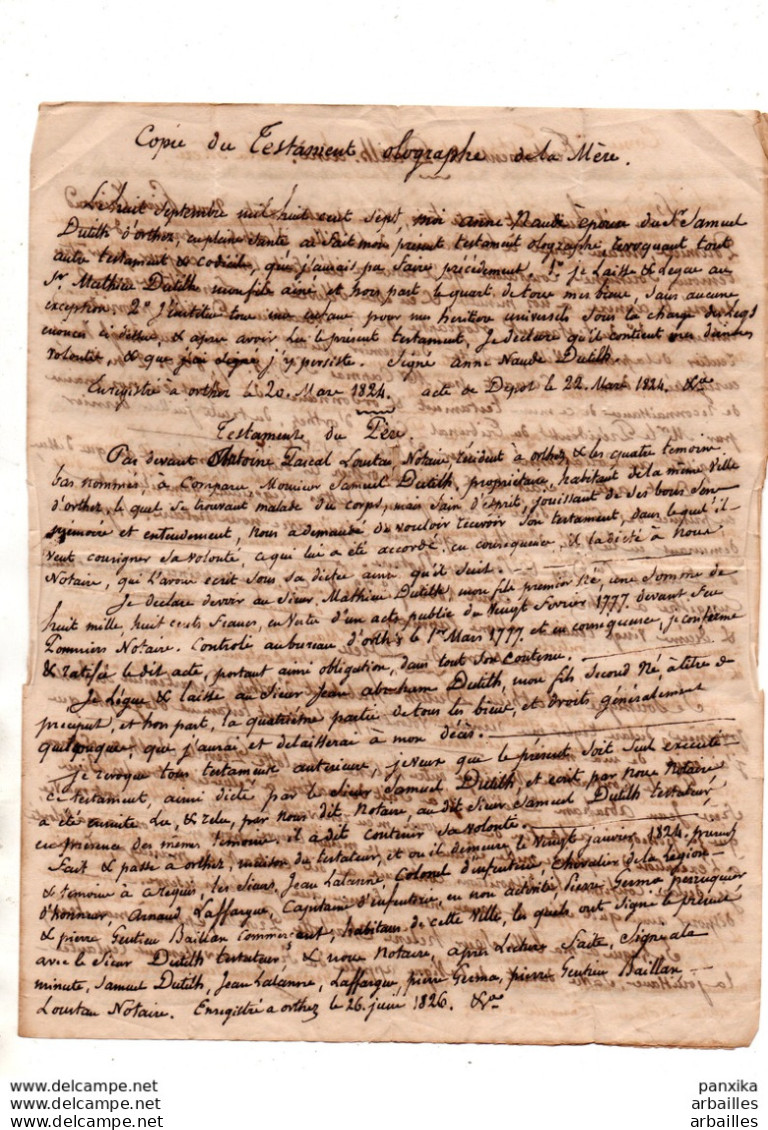 Copie du Testament olographe de la Mère.
Le huit Septembre mil huit cent Sept, moi anne Naudé épouse du Sr. Samuel
Dutilh d'orthez, en pleine Santé ai fait mon present testament olographe, revoquant tout
autre testament & codicile, que j'aurais pu faire précédement. 1.° je Laisse & Legue au
Sr. Mathieu Dutilh mon fils ainé et hors part le quart de tous mes biens, Sans aucune
exception. 2.° J'institue tous mes enfans pour mes heritiers universels Sous la charge du Legs
enoncé ci dessus, & apres avoir Lu le présent testament, Je déclare qu'il contient mes dernieres
volontés, & que j'ai signé j'y persiste. Signé anne Naudé Dutilh.
Enregistré à orthez le 20. Mars 1824. acte de Depot le 22. Mars 1824. &a
Testament du Père.
Par devant Antoine Pascal Loustau Notaire, résident à orthez & les quatre temoins
bas nommés, à Comparu Monsieur Samuel Dutilh, propriétaire, habitant de la meme Ville
d'orthez, le quel se trouvant malade du corps, mais Sain d'esprit, jouissant de Ses bons Sens
mémoire et entendement, Nous a demandé de vouloir recevoir Son testament, dans le quel il
veut consigner Sa volonté, ce qui lui a été accordé. en consequence il l'a dicté à Nous
Notaire, qui l'avons ecrit Sous Sa dictée ainsi qu'il Suit.
Je declare devoir au Sieur Mathieu Dutilh, mon fils premier Né, une Somme de
huit mille, huit cents Francs, en Vertu d'un acte public du Vingt Fevrier 1777. devant feu
Pommiers Notaire. Controlé au bureau d'orthez le 1er Mars 1777. et en consequence, je confirme
& ratifie le dit acte, portant ainsi obligation, dans tout Son contenu.
Je Lègue & laisse au Sieur Jean abraham Dutilh, mon fils Second Né, à titre de
préciput, et hors part, la quatriéme partie de tous les biens, et droits généralement
quelconques, que j'aurai, et delaisserai à mon décès.
je revoque tous testamens anterieurs, je veux que le présent Soit Seul executé
Ce testament, ainsi dicté par le Sieur Samuel Dutilh, et ecrit par Nous Notaire
a été ensuite Lu, & relu, par Nous dit Notaire, au dit Sieur Samuel Dutilh testateur,
en présence des memes temoins. il a dit contenir Sa volonté.
Fait & passé à orthez, maison du testateur, et ou il demeure, le Vingt janvier 1824, présens
& temoins à ce requis les Sieurs, Jean Lalanne, Colonel d'infanterie Chevalier de la Légion
d'honneur, Arnaud Laffargue, Capitaine d'infanterie, en non activité, Pierre Germa perruquier
& pierre Gentieu Baillan Commerçant, habitans de cette Ville, les quels ont Signé le présent
avec le Sieur Dutilh testateur & nous Notaire, après Lecture Faite, Signé à la
minute, Samuel Dutilh, Jean Lalanne, Laffargue, pierre Germa, pierre Gentieu Baillan
Loustau Notaire. Enregistré a orthez le 26. juin 1826. &a
www.delcampe.net
www.delcampe.net
www.delcampe.net
panxika
arbailles
arbailles